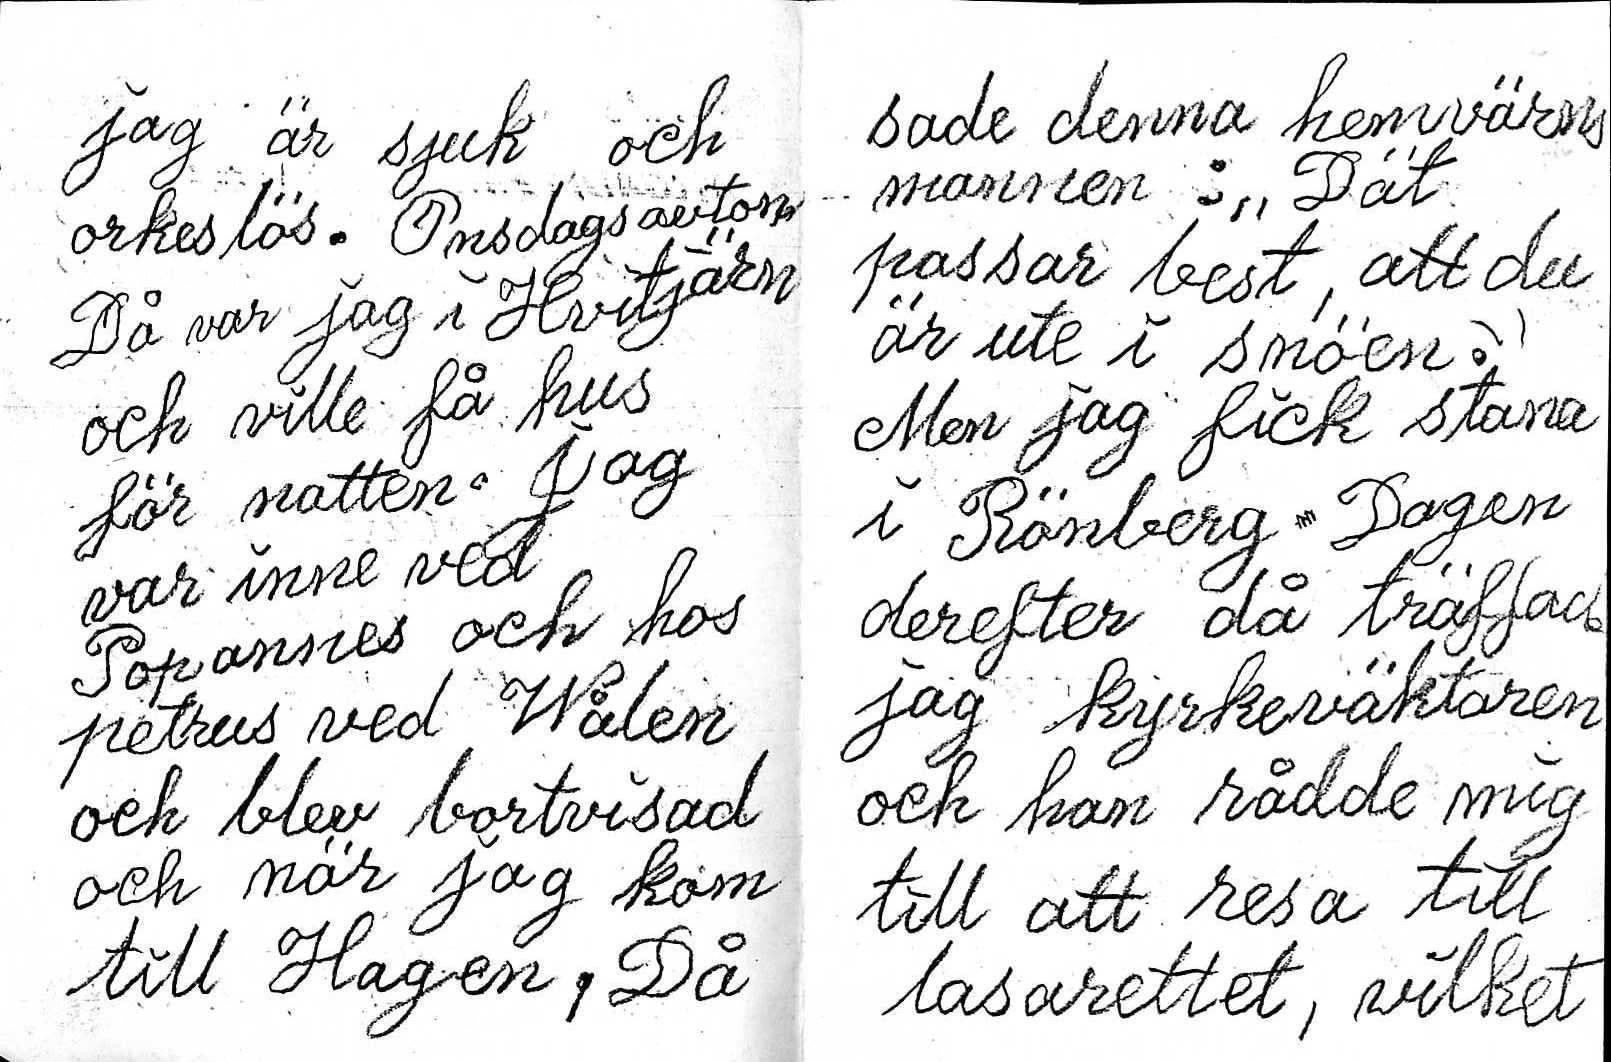 jag är sjuk och
orkeslös. Onsdagsavton
Då var jag i Hvitjärn
och ville få hus
för natten. Jag
var inne ved
Popannes och hos
petrus ved Wålen
och blev bortvisad
och när jag kom
till Hagen, Då
sade denna hemvärns
mannen : „ Dät
passar best, att du
är ute i snöen."
Men jag fick stana
i Rönberg " Dagen
derefter då träffade
jag kyrkeväktaren
och han rådde mig
till att resa till
lasarettet, vilket